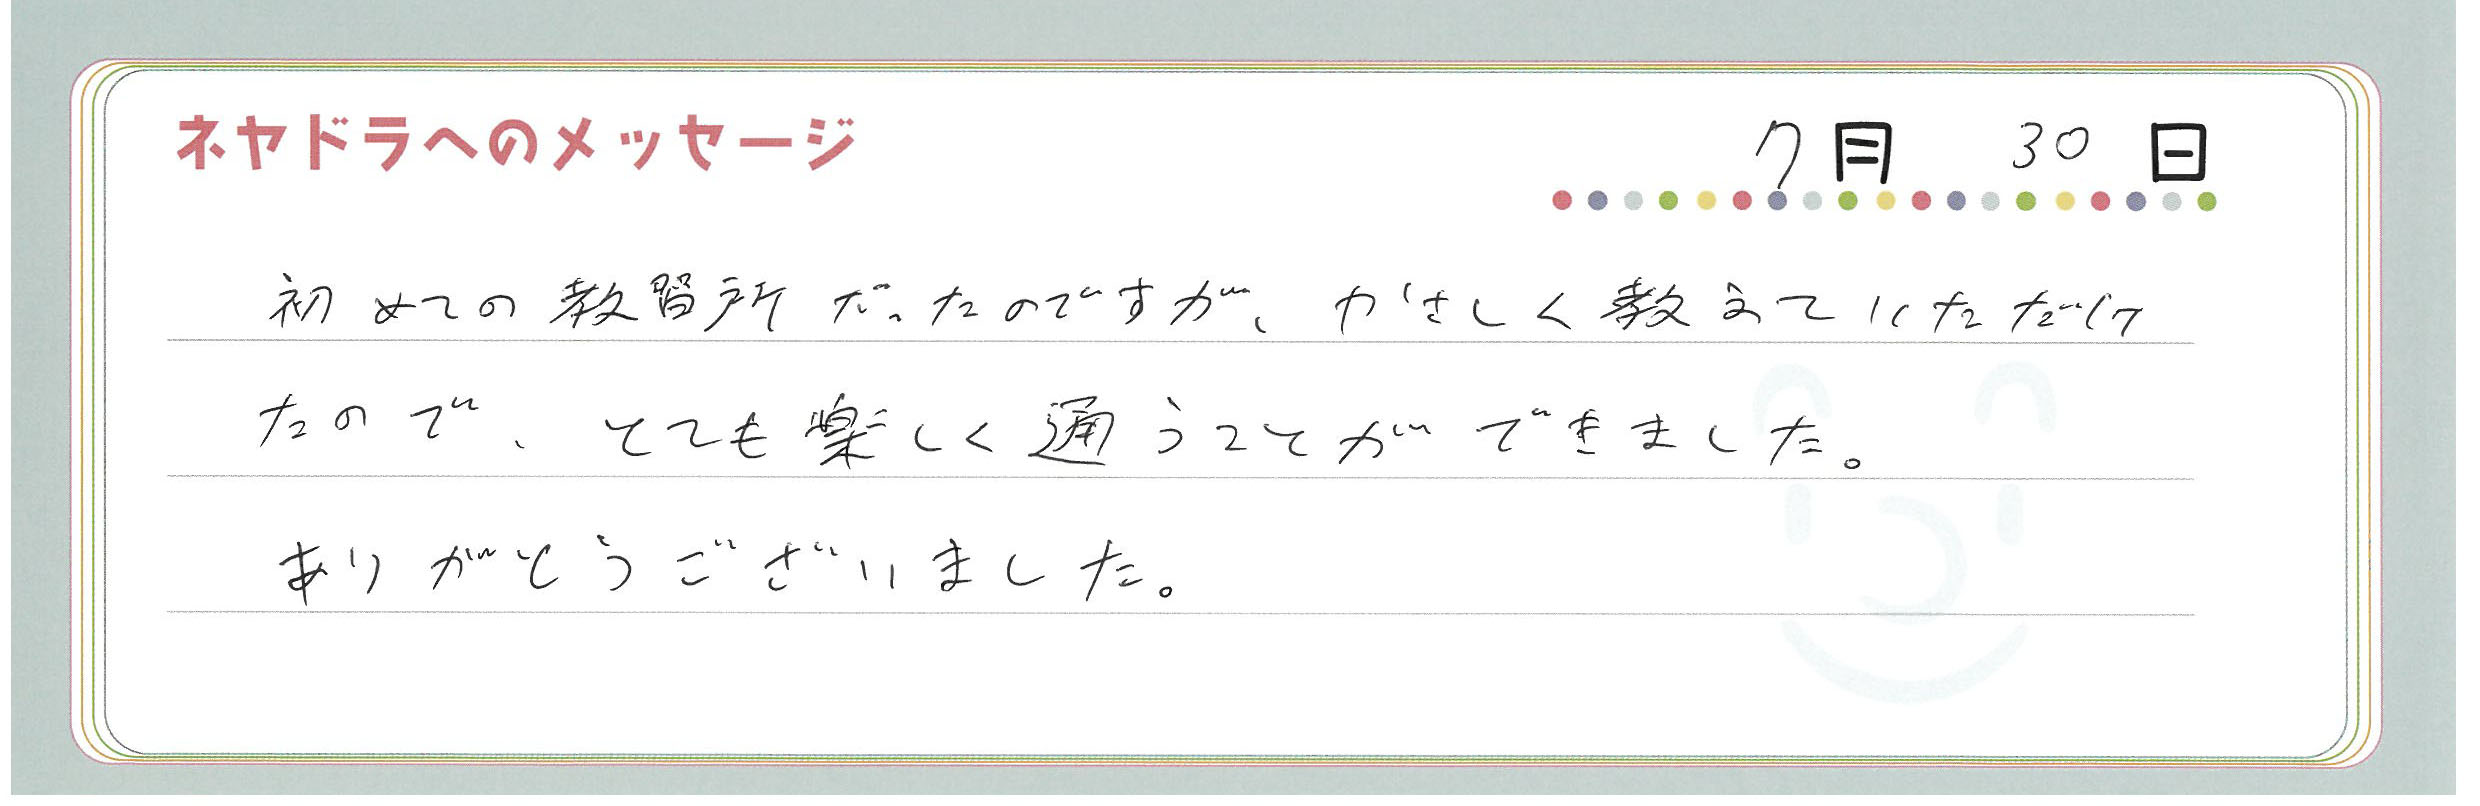 ネヤドラへのメッセージ
7月 30日
初めての教習所だったのですが、やさしく教えていただけ
たので、とても楽しく通うことができました。
ありがとうございました。